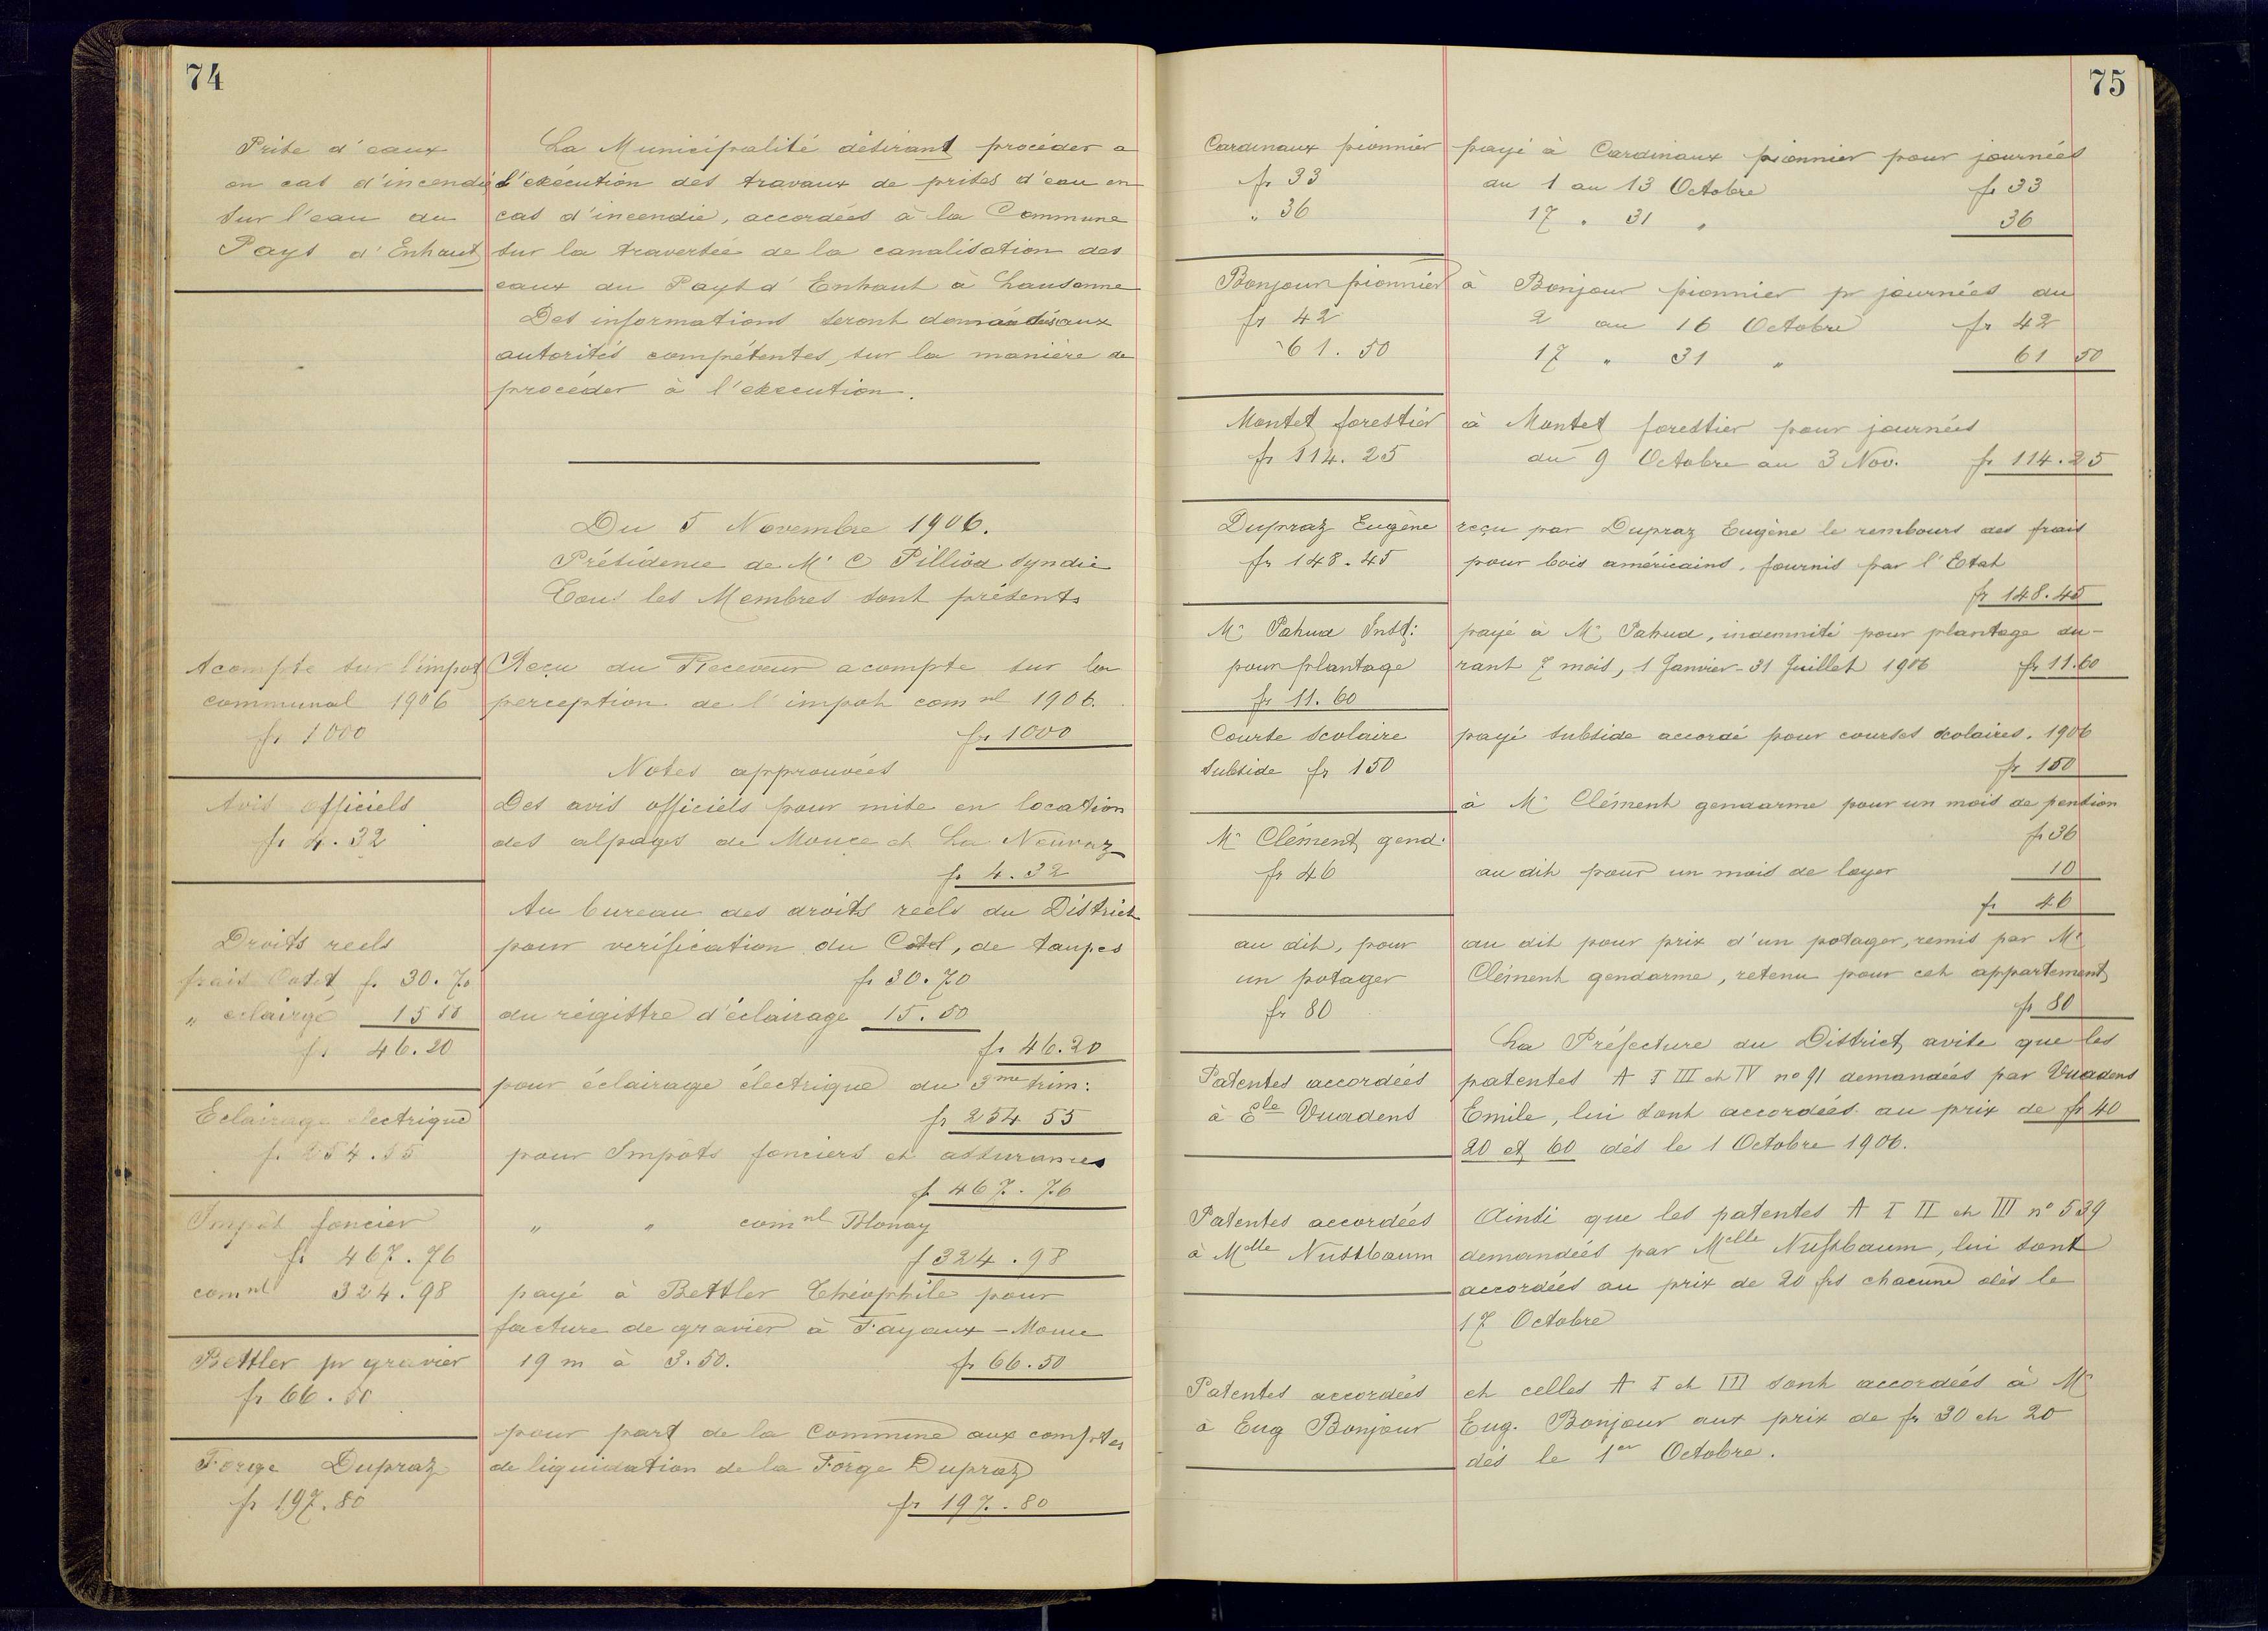 74
Prise d'eaux
en cas d'incendie
sur l'eau du
Pays d'Enhaut
La Municipalité désirant procéder a
l'exécution des travaux de prises d'eau en
cas d'incendie, accordées à la Commune
sur la traversée de la canalisation des
eaux du Pays d'Enhaut à Lausanne
Des informations seront demandées aux
autorités compétentes, sur la manière de
procéder à l'execution.
Du 5 Novembre 1906.
Présidence de Mr C Pilliod syndic
Tous les Membres sont présents
Acompte sur l'impot
communal 1906
fr 1000
Reçu du Receveur acompte sur la
perception de l'impot comnl 1906.
fr 1000
Notes approuvées
Avis officiels
fr 4.32
Des avis officiels pour mise en location
des alpages de Mouce et La Neuvaz
fr 4.32
Droits reels
frais Catst f. 30.70
" eclairge 15 50
fr 46.20
Au bureau des droits reels du District
pour verification du Catst, de taupes
fr 30.70
du régistre d'éclairage 15.50
fr 46.20
Eclairage electrique
f. 254.55
pour éclairage électrique du 3me trim:
fr 254 55
Impôt foncier
fr 467.76
comnl 324.98
pour Impôts fonciers et assurances
f 467.76
" " comnl Blonay
f 324.98
Bettler pr gravier
fr 66.50
payé à Bettler Théophile pour
facture de gravier à Fayaux - Mouce
19 m à 3.50. fr 66.50
Forge Dupraz
fr 197.80
pour part de la Commune aux comptes
de liquidation de la Forge Dupraz
fr 197.80
75
Cardinaux pionnier
fr 33
" 36
payé à Cardinaux pionnier pour journées
du 1 au 13 Octobre fr 33
17 " 31 " 36
Bonjour pionnier
fr 42
" 61.50
à Bonjour pionnier pr journées du
2 au 16 Octobre fr 42
17 " 31 " 61 50
Montet forestier
fr 114.25
à Montet forestier pour journées
du 9 Octobre au 3 Nov. fr 114.25
Dupraz Eugène
fr 148.45
reçu par Dupraz Eugène le rembours des frais
pour bois américains, fournis par l'Etat
fr 148.45
Mr Pahud Instt:
pour plantage
fr 11.60
payé à Mr Pahud, indemnité pour plantage du-
rant 7 mois, 1 Janvier - 31 Juillet 1906 fr 11.60
Course scolaire
subside fr 150
payé subside accordé pour courses scolaires. 1906
fr 150
Mr Clément gend.
fr 46
à Mr Clément gendarme pour un mois de pension
fr 36
au dit pour un mois de loyer 10
fr 46
au dit, pour
un potager
fr 80
au dit pour prix d'un potager, remis par Mr
Clément gendarme, retenu pour cet appartement
fr 80
Patentes accordées
à Ele Vuadens
La Préfecture du District avise que les
patentes A I III et IV no 91 demandées par Vuadens
Emile, lui sont accordées au prix de fr 40
20 et 60 dès le 1 Octobre 1906.
Patentes accordées
à Melle Nussbaum
Ainsi que les patentes A I II et III no 539
demandées par Melle Nussbaum, lui sont
accordées au prix de 20 frs chacune dès le
17 Octobre
Patentes accordées
à Eug Bonjour
et celles A I et III sont accordées à Mr
Eug. Bonjour aux prix de fr 30 et 20
dès le 1er Octobre.